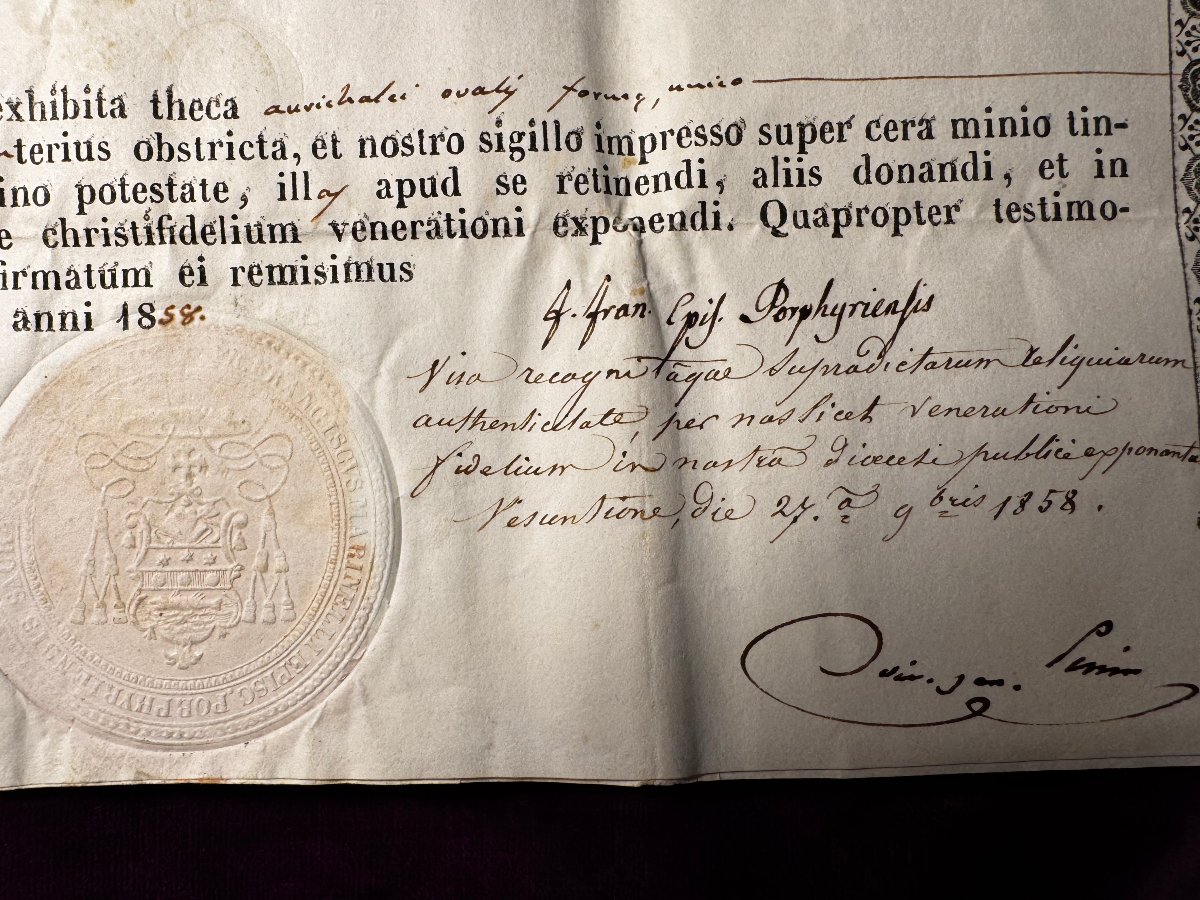 exhibita theca aurichalci ovalis formæ, unico
terius obstricta, et nostro sigillo impresso super cera minio tin-
ino potestate, illas apud se retinendi, aliis donandi, et in
e christifidelium venerationi exponendi. Quapropter testimo-
firmatum ei remisimus
anni 1858.
F. Fran. Epis. Porphyriensis
Visa recognitaque supradictarum Reliquiarum
authenticitate, per nos licet venerationi
fidelium in nostrâ diœcesi publice exponantur
Vesuntione, die 27.ª 9bris 1858.
MARINELLI EPISC. PORPHYRIENSIS
vic. gen.